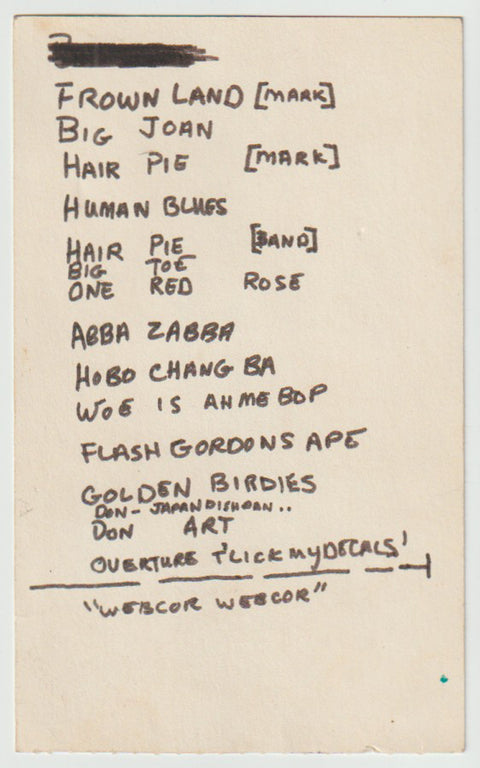 FROWN LAND [MARK]
BIG JOAN
HAIR PIE [MARK]
HUMAN BLUES
HAIR PIE [BAND]
BIG TOE
ONE RED ROSE
ABBA ZABBA
HOBO CHANG BA
WOE IS AHMEBOP
FLASH GORDONS APE
GOLDEN BIRDIES
DON - JAPANDISHPAN..
DON ART
OVERTURE T'LICK MY DECALS'
"WEBCOR WEBCOR"